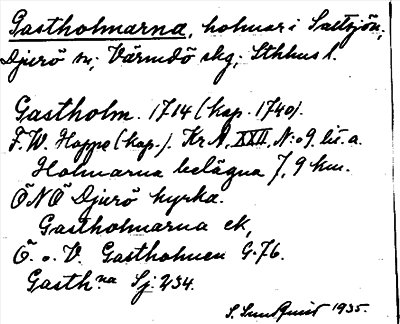 Gastholmarna, holmar i Saltsjön,
Djurö sn; Värmdö skg; Sthlms l.
Gastholm. 1714 (kop. 1740).
F.W. Hoppe (kop.). Kr A, XXII, N:o 9 lit. a.
Holmarna belägna 7,9 km.
ÖNÖ Djurö kyrka.
Gastholmarna ek,
Ö. o. V. Gastholmen G. 76.
Gasth:na Sj. 234.
S. Sundquist 1935.